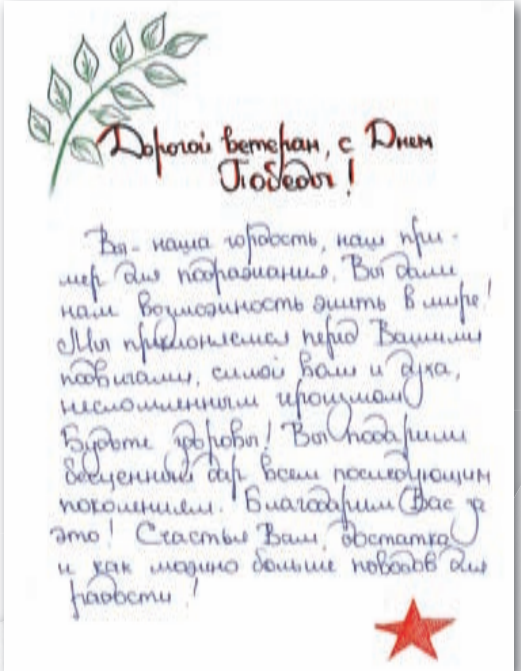 Дорогой ветеран, с Днем
Победы!
Вы - наша гордость, наш при-
мер для подражания. Вы дали
нам возможность жить в мире!
Мы преклоняемся перед Вашими
подвигами, силой воли и духа,
несломленным героизмом
Будьте здоровы! Вы подарили
бесценный дар всем последующим
поколениям. Благодарим Вас за
это! Счастья Вам, достатка
и как можно больше поводов для
радости!